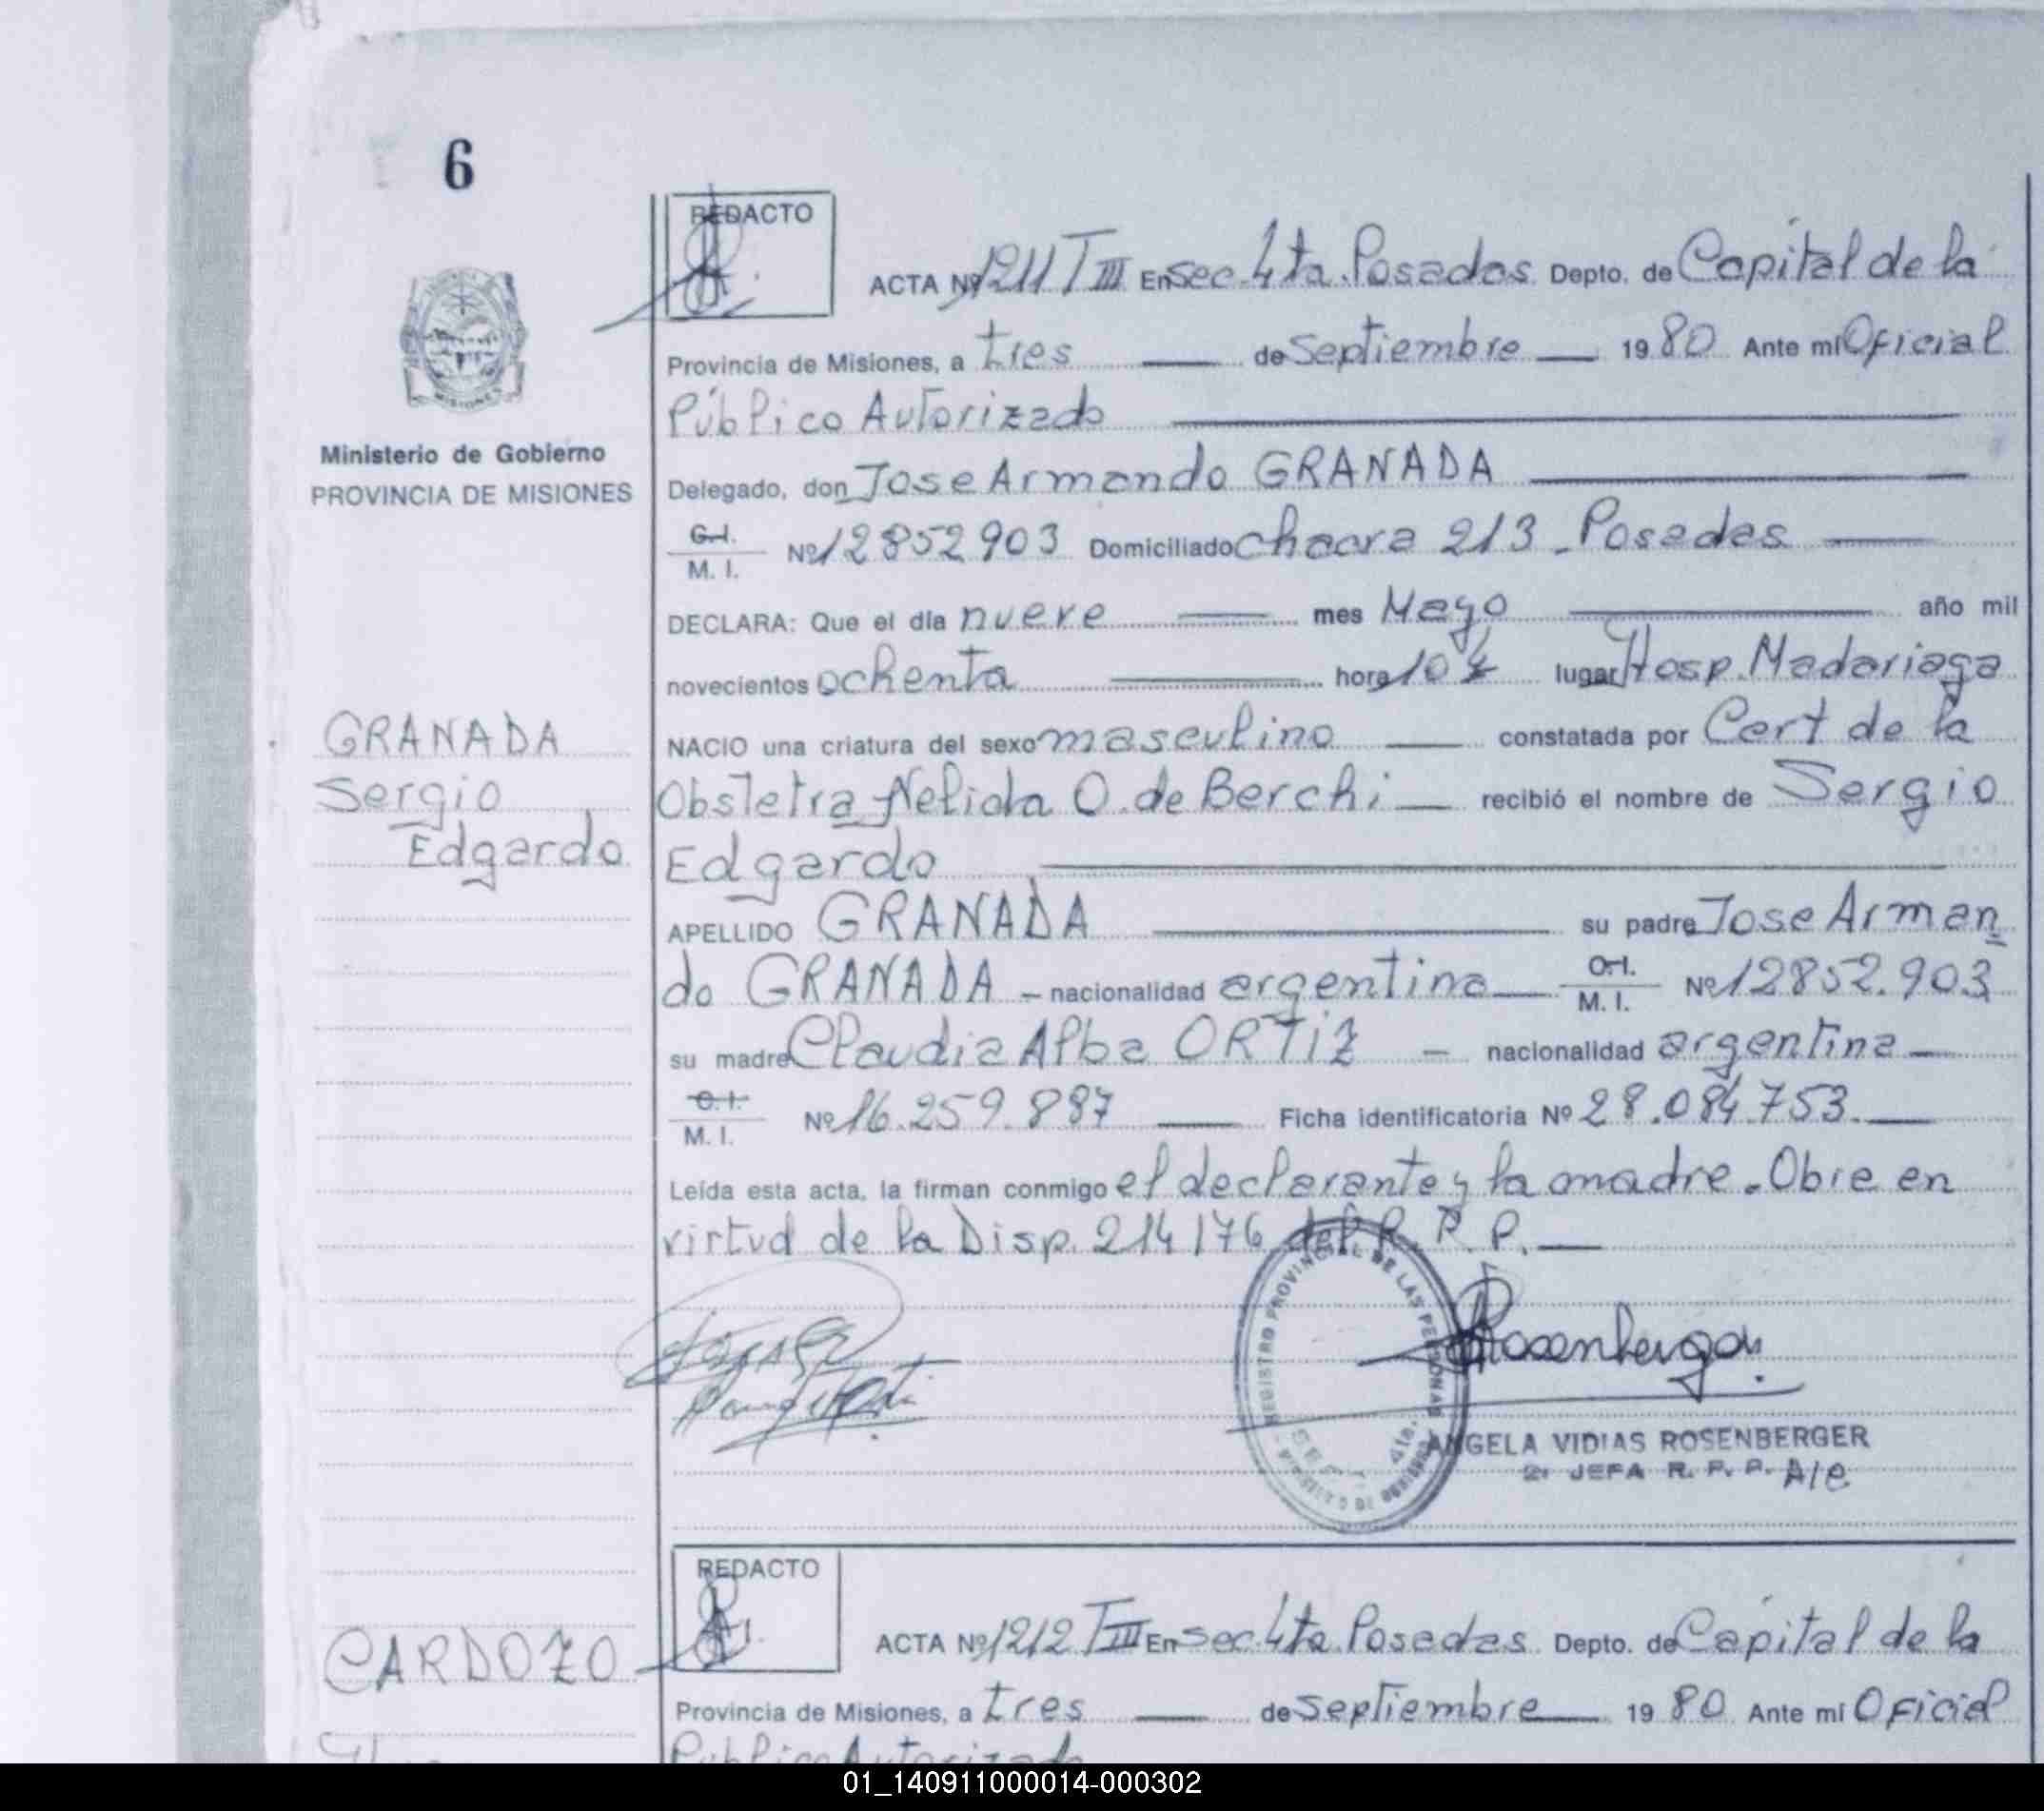 6
REDACTO
ACTA Nº 1211 T III En Sec. 4ta. Posadas Depto. de Capital de la
Provincia de Misiones, a tres de Septiembre 1980 Ante mí Oficial
Público Autorizado
Ministerio de Gobierno
PROVINCIA DE MISIONES
Delegado, don Jose Armando GRANADA
C.I.
M. I. Nº 12852903 Domiciliado Chacra 213 - Posadas
DECLARA: Que el día nueve mes Mayo año mil
novecientos ochenta hora 10 lugar Hosp. Madariaga
GRANADA
Sergio
Edgardo
NACIO una criatura del sexo masculino constatada por Cert de la
Obstetra Nelida O. de Berchi recibió el nombre de Sergio
Edgardo
APELLIDO GRANADA su padre Jose Arman
do GRANADA - nacionalidad argentina C.I.
M. I. Nº 12852.903
su madre Claudia Alba ORTIZ - nacionalidad argentina
C.I.
M. I. Nº 16.259.887 Ficha identificatoria Nº 28.084.753.
Leída esta acta, la firman conmigo el declarante y la madre. Obre en
virtud de la Disp. 214/76 del R. P. P.
REGISTRO PROVINCIAL DE LAS PERSONAS
4ta.
Rosenberger
ANGELA VIDIAS ROSENBERGER
2ª JEFA R. P. P. A/C
REDACTO
ACTA Nº 1212 T III En Sec. 4ta. Posadas Depto. de Capital de la
CARDOZO
Provincia de Misiones, a tres de Septiembre 1980 Ante mí Oficial
Público Autorizado
01_140911000014-000302